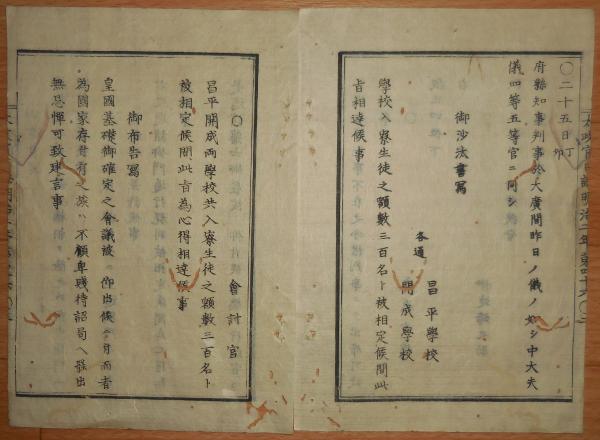 〇二十五日丁卯
府縣知事判事於大廣間昨日ノ儀ノ如シ中大夫
儀四等五等官ニ同シ
御沙汰書寫
各通
昌平學校
開成學校
學校入寮生徒之額數三百名ト被相定候間此
旨相達候事
會計官
昌平開成両學校共入寮生徒之額數三百名ト
被相定候間此旨為心得相達候事
御布告寫
皇國基礎御確定之會議被 仰出候ニ付而者
為國家存付有之族ハ不顧卑賤待詔局ヘ罷出
無忌憚可致建言事